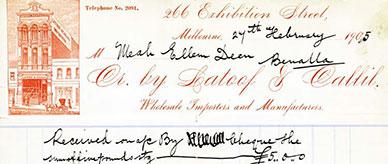 Telephone No. 2091.
266 Exhibition Street,
Melbourne, 24th February 1905
M Meah Ellem Deen Benalla
Cr. by Latoof & Callil.
Wholesale Importers and Manufacturers.
Received on a/c By Cheque the
sum of five pounds stg £5.0.0